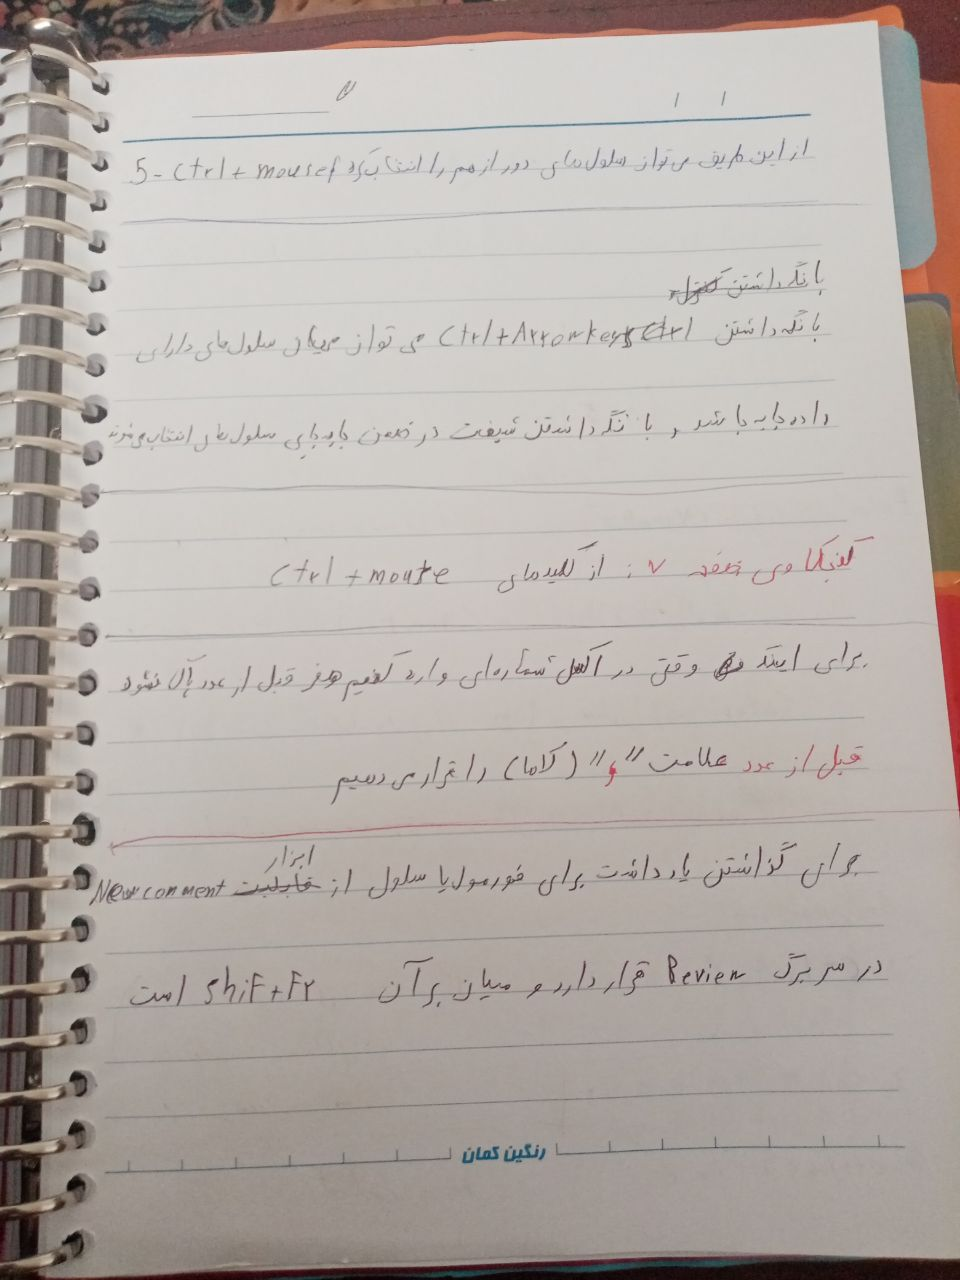 ۷
5- Ctrl + mouse از این طریق می‌توان سلول‌های دور از هم را انتخاب کرد
با نگه داشتن کنترل
با نگه داشتن Ctrl + Arrow keys Ctrl می توان میان سلول‌های دارای
داده جابه جا شد و با نگه داشتن شیفت در ضمن جابه‌جایی سلول‌های انتخاب می‌شوند
کنجکاوی صفحه ۷: از کلیدهای Ctrl + mouse
برای اینکه وقتی در اکسل شماره‌ای وارد کنیم صفر قبل از عدد پاک نشود
قبل از عدد علامت "و" (کاما) را قرار می دهیم
ابزار
برای گذاشتن یادداشت برای فورمول یا سلول از قابلیت New comment
در سربرگ Review قرار دارد و میان بر آن Shif + F۲ است
رنگین کمان